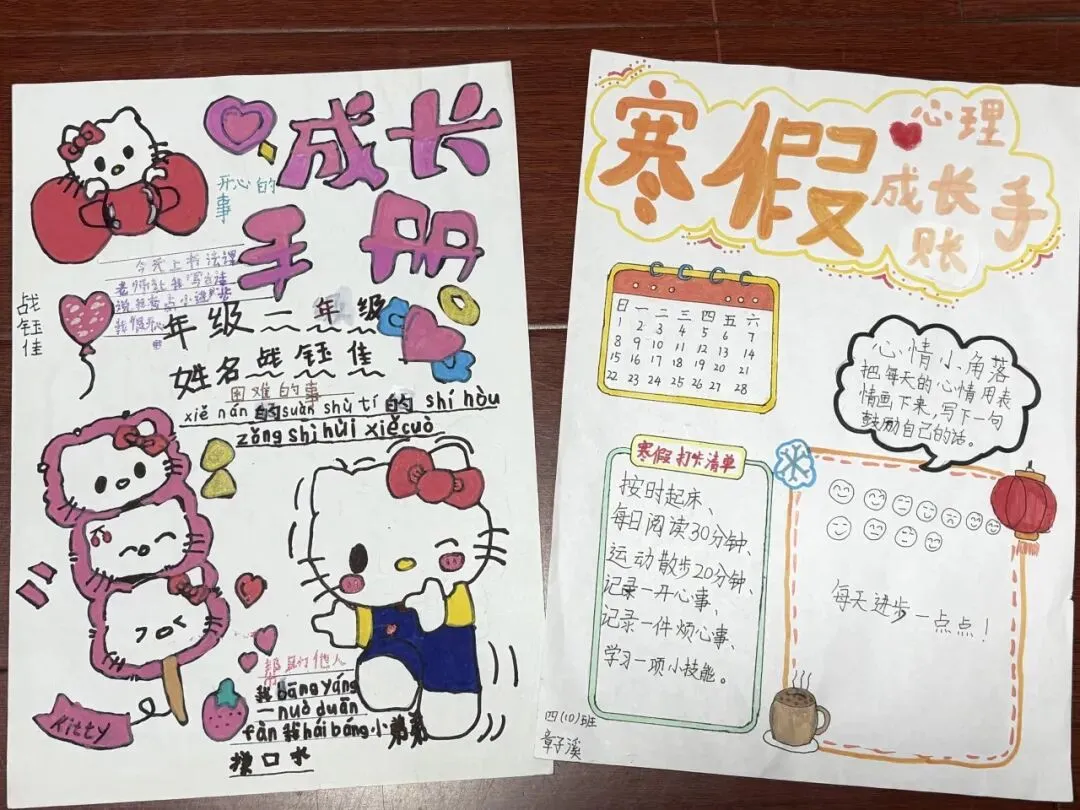 成长
手册
开心的
事
今天上书法课
老师让我写
我很开心
战钰佳
年级二年级
姓名战钰佳
困难的事
xiě nán的suàn shù tí的shí hòu
zǒng shì huì xiě cuò
帮助他人
我bāng yáng
一nuò duān
fàn我hái bāng小弟弟
擦口水
Kitty
寒假心理
成长手
账
日一二三四五六
1 2 3 4 5 6 7
8 9 10 11 12 13 14
15 16 17 18 19 20 21
22 23 24 25 26 27 28
心情小角落
把每天的心情用表
情画下来,写下一句
鼓励自己的话。
寒假打卡清单
按时起床、
每日阅读30分钟、
运动散步20分钟、
记录一开心事、
记录一件烦心事、
学习一项小技能。
每天进步一点点!
四(10)班
章子溪